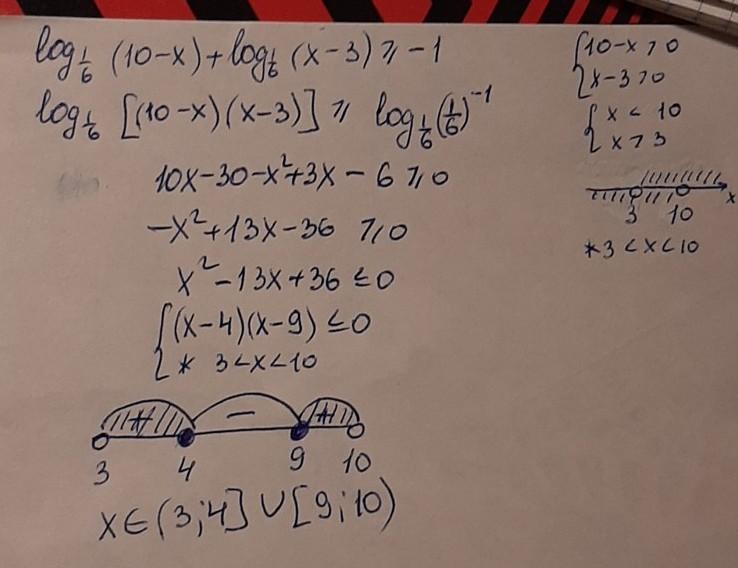 log_{1/6} (10-x) + log_{1/6} (x-3) ⩾ -1
log_{1/6} [(10-x)(x-3)] ⩾ log_{1/6} (1/6)^{-1}
10x-30-x²+3x - 6 ⩾ 0
-x²+13x-36 ⩾ 0
x²-13x+36 ≤ 0
{ (x-4)(x-9) ≤ 0
* 3<x<10
+ − +
3 4 9 10
x∈(3;4]∪[9;10)
{ 10-x>0
x-3>0
{ x < 10
x > 3
3 10 x
* 3<x<10